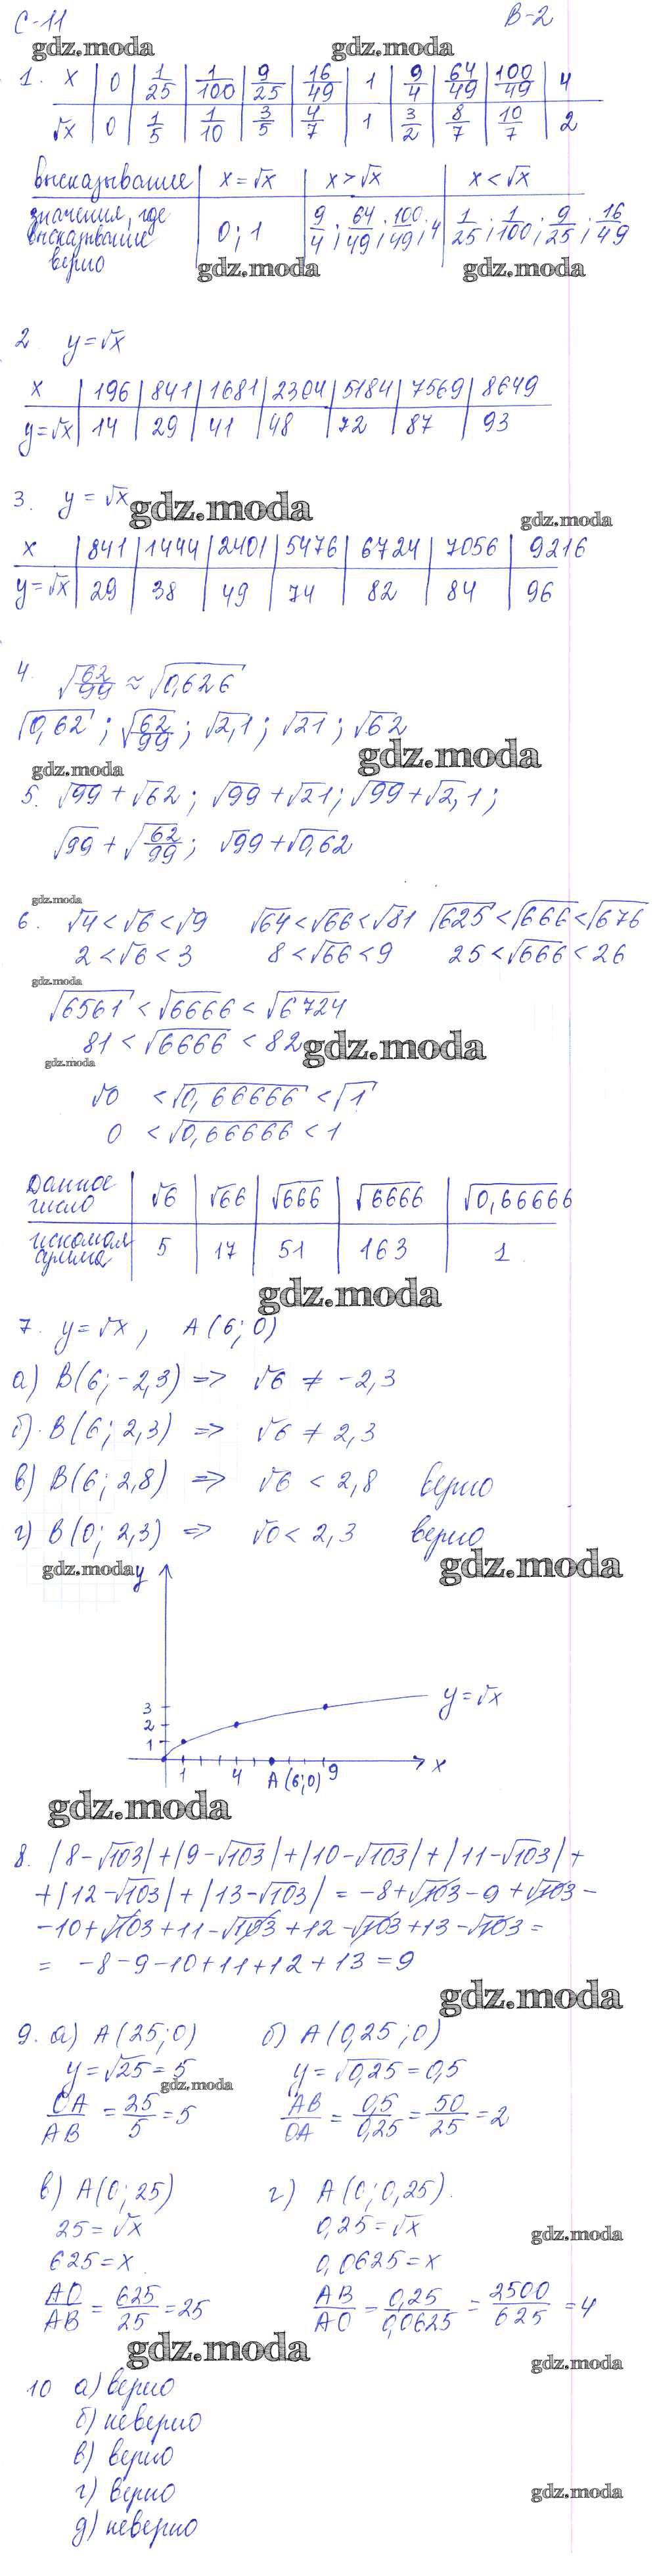 С-11 В-2
gdz.moda gdz.moda
1. x | 0 | 1/25 | 1/100 | 9/25 | 16/49 | 1 | 9/4 | 64/49 | 100/49 | 4
√x | 0 | 1/5 | 1/10 | 3/5 | 4/7 | 1 | 3/2 | 8/7 | 10/7 | 2
высказывание | x=√x | x>√x | x<√x
значения, где высказывание верно | 0; 1 | 9/4; 64/49; 100/49; 4 | 1/25; 1/100; 9/25; 16/49
gdz.moda gdz.moda
2 y=√x
x | 196 | 841 | 1681 | 2304 | 5184 | 7569 | 8649
y=√x | 14 | 29 | 41 | 48 | 72 | 87 | 93
3. y=√x gdz.moda gdz.moda
x | 841 | 1444 | 2401 | 5476 | 6724 | 7056 | 9216
y=√x | 29 | 38 | 49 | 74 | 82 | 84 | 96
4. √62/99 ≈ √0,626
√0,62; √62/99; √2,1; √21; √62
gdz.moda gdz.moda
5. √99+√62; √99+√21; √99+√2,1;
√99+√62/99; √99+√0,62
gdz.moda
6. √4<√6<√9 √64<√66<√81 √625<√666<√676
2<√6<3 8<√66<9 25<√666<26
gdz.moda
√6561<√6666<√6724
81<√6666<82 gdz.moda
gdz.moda
√0 <√0,66666<√1
0 <√0,66666<1
Данное число | √6 | √66 | √666 | √6666 | √0,66666
искомая сумма | 5 | 17 | 51 | 163 | 1
gdz.moda
7. y=√x, A(6;0)
а) B(6;-2,3) => √6 ≠ -2,3
б) B(6;2,3) => √6 ≠ 2,3
в) B(6;2,8) => √6 < 2,8 верно
г) B(0;2,3) => √0 < 2,3 верно
gdz.moda y gdz.moda
3 y=√x
2
1
1 4 A(6;0) 9 x
gdz.moda
8. |8-√103|+|9-√103|+|10-√103|+|11-√103|+
+|12-√103|+|13-√103| = -8+√103-9+√103-
-10+√103+11-√103+12-√103+13-√103=
= -8-9-10+11+12+13=9
gdz.moda
9. а) A(25;0) б) A(0,25;0)
y=√25=5 y=√0,25=0,5
gdz.moda
OA/AB = 25/5 = 5 AB/OA = 0,5/0,25 = 50/25 = 2
в) A(0;25) г) A(0;0,25).
25=√x 0,25=√x gdz.moda
625=x 0,0625=x
AO/AB = 625/25 = 25 AB/AO = 0,25/0,0625 = 2500/625 = 4
gdz.moda gdz.moda
10 а) верно
б) неверно
в) верно
г) верно gdz.moda
д) неверно